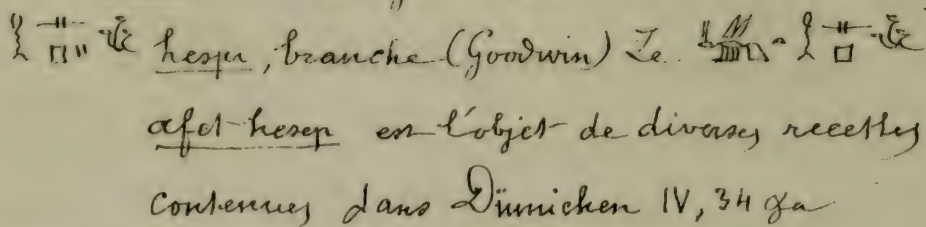 hespi, branche (Goodwin) Le
afet-hesep est l'objet de diverses recettes
contenues dans Dümichen IV, 34